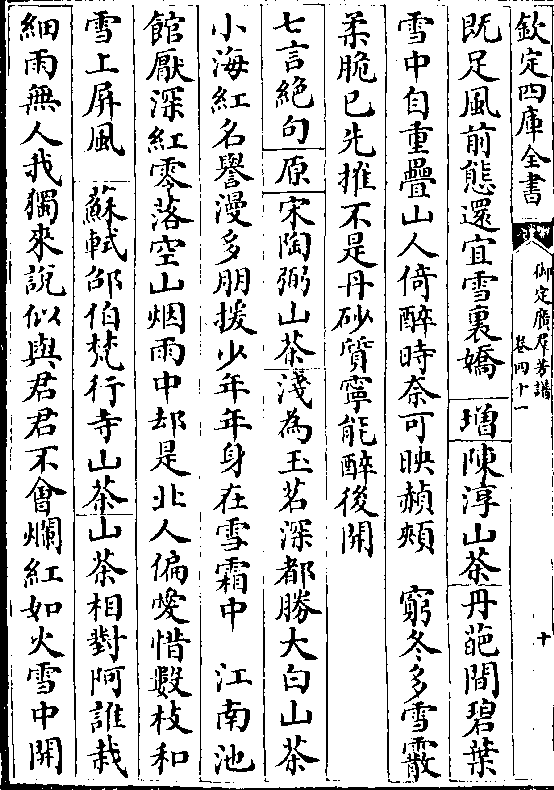 欽定四庫全書
御定廣羣芳譜
卷四十一
十
既足風前態還宜雪裏嬌 增 陳淳山茶 丹葩間碧葉
雪中自重疊山人倚醉時奈可映赬頰 窮冬多雪霰
柔脆已先摧不是丹砂質寧能醉後開
七言絶句 原 宋陶弼山茶 淺為玉茗深都勝大白山茶
小海紅名譽漫多朋援少年年身在雪霜中 江南池
館厭深紅零落空山烟雨中却是北人偏愛惜數枝和
雪上屏風 蘇軾邵伯梵行寺山茶 山茶相對阿誰栽
細雨無人我獨來說似與君君不會爛紅如火雪中開